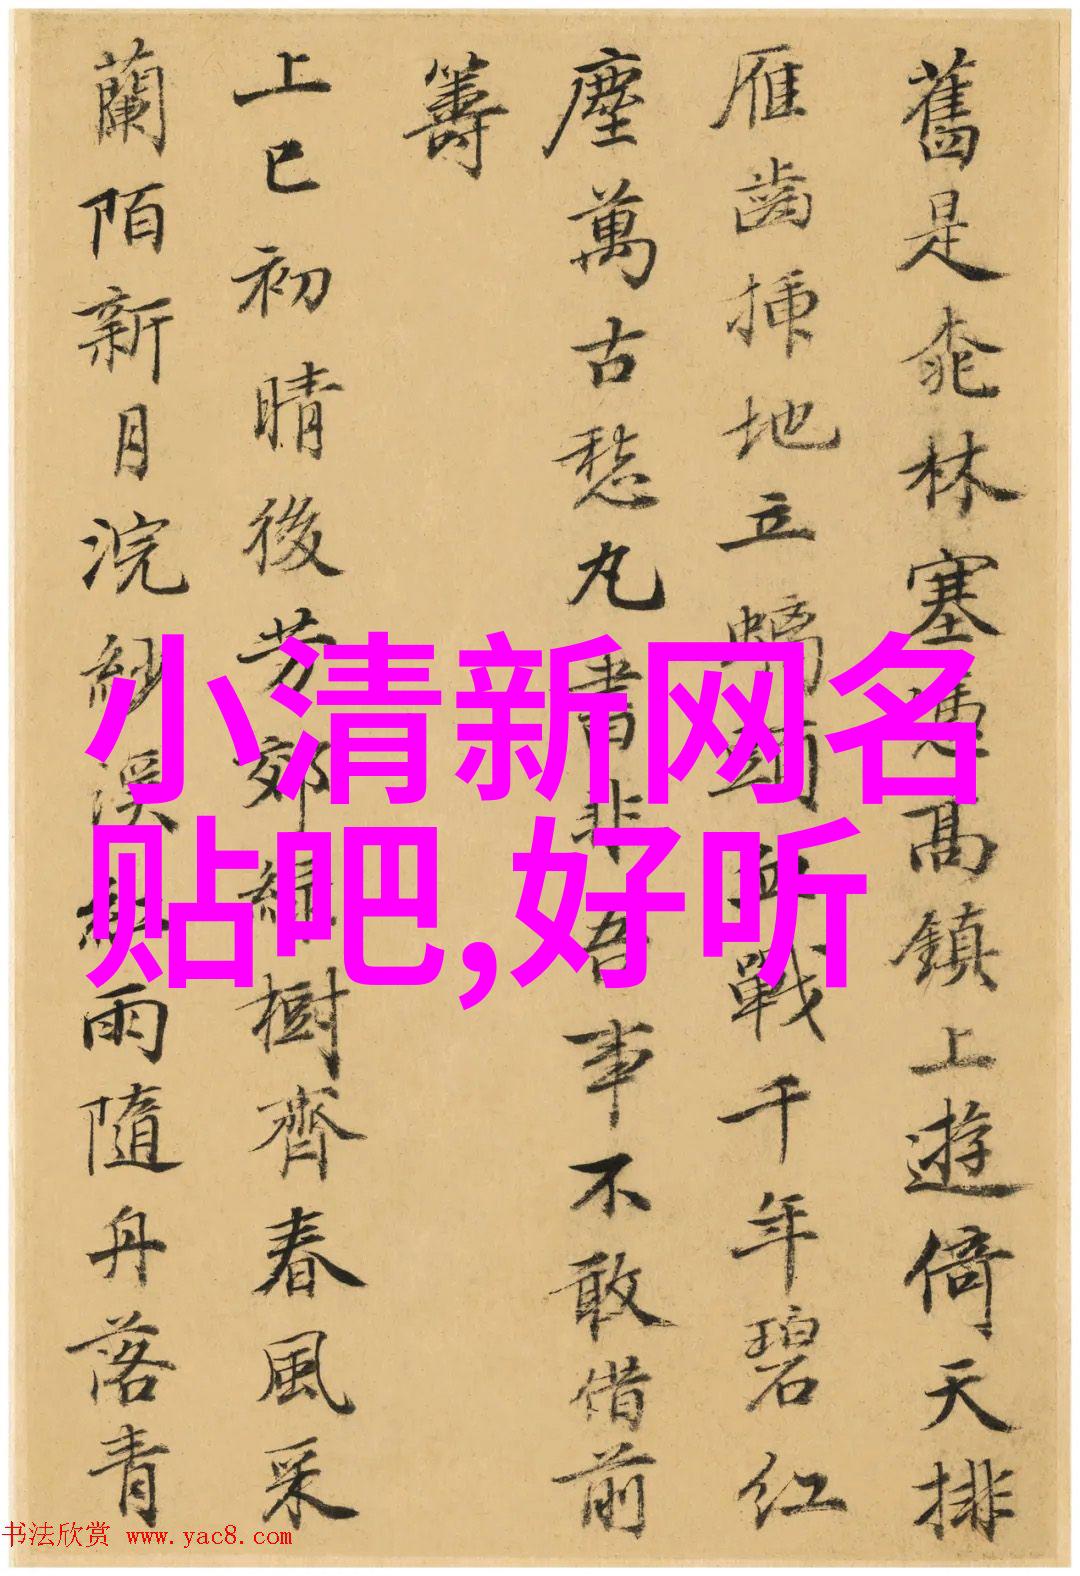 舊是桃林塞憑高鎮上遊倚天排
雁齒插地立螭頭血戰千年碧紅
塵萬古愁丸書非吾事不敢借前
籌
上巳初晴後芳郊綠樹齊春風采
蘭陌新月浣紗溪紅雨隨舟落青
小清新网名
贴吧,好听
书法欣赏 www.yac8.com